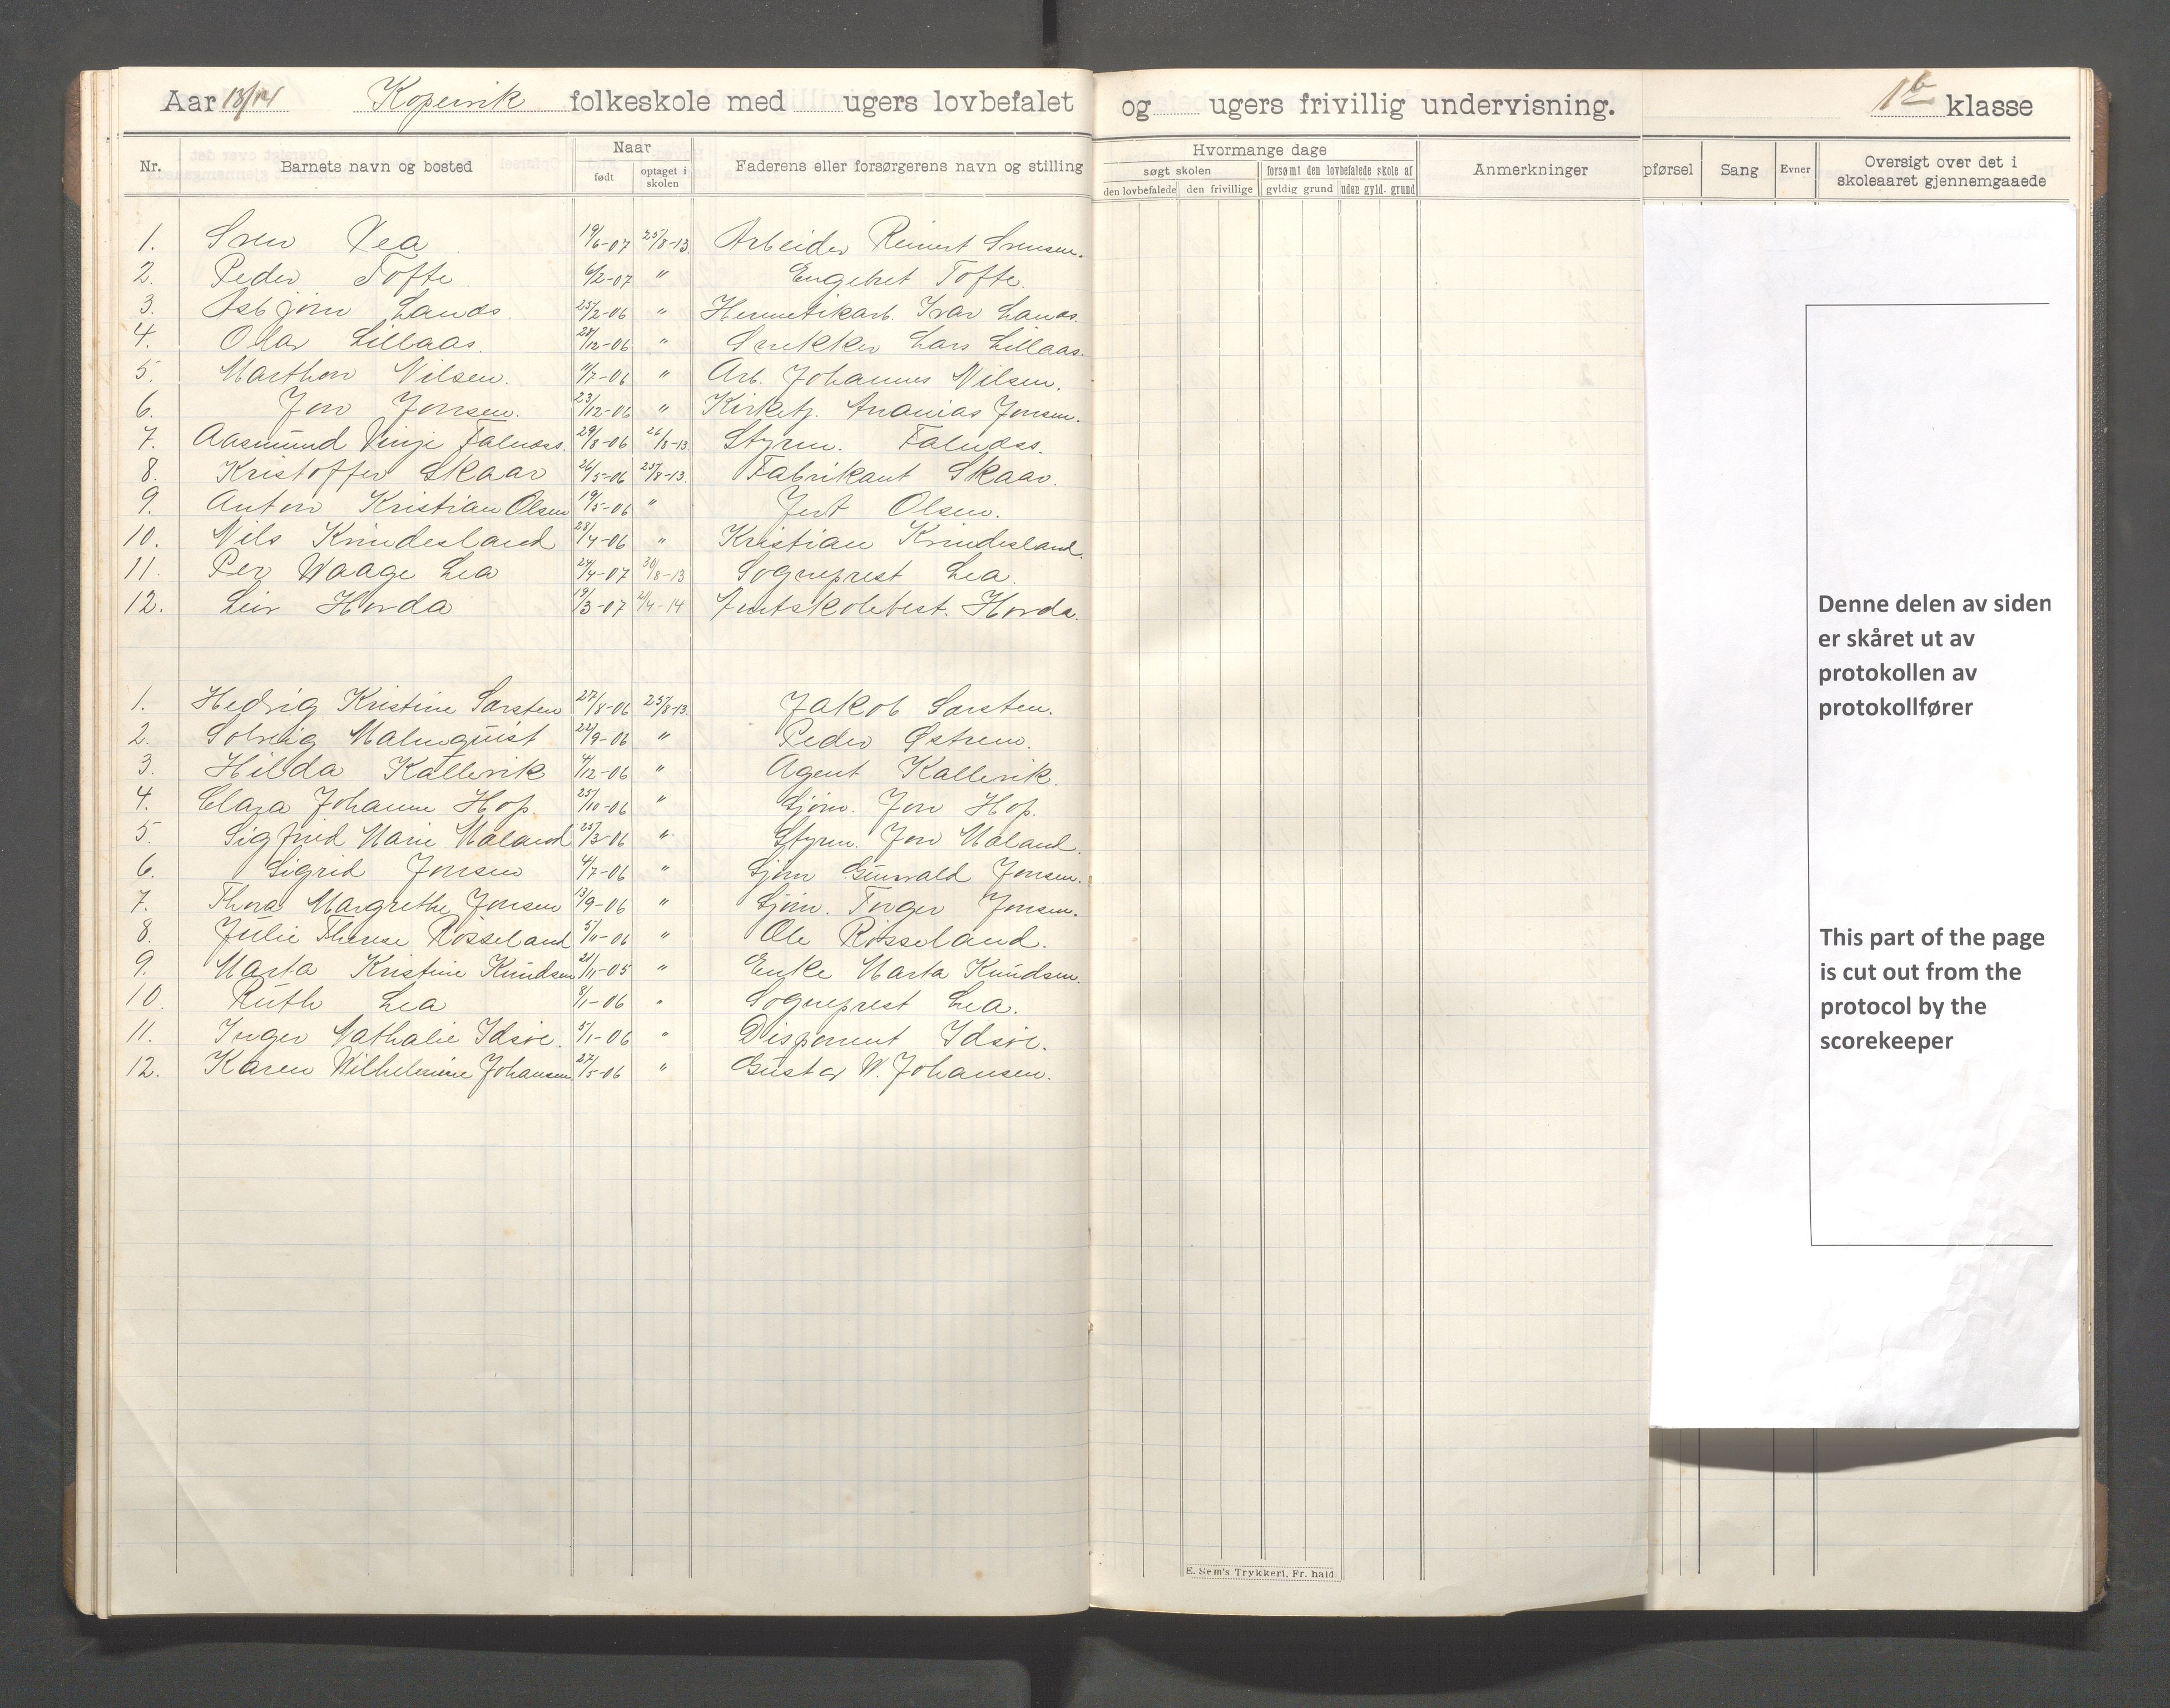 Aar 13/14 Kopervik folkeskole med ugers lovbefalet og ugers frivillig undervisning. 1b klasse
Nr. Barnets navn og bosted Naar født optaget i skolen Faderens eller forsørgerens navn og stilling Hvormange dage søgt skolen den lovbefalede den frivillige forsømt den lovbefalede skole af gyldig grund uden gyld. grund Anmerkninger pførsel Sang Evner Oversigt over det i skoleaaret gjennemgaaede
1. Sven Vea 19/6-07 25/8-13 Arbeider Reinert Svensen.
2. Peder Tofte 6/2-07 " Engebret Tofte.
3. Asbjørn Lands 25/2-06 " Hermetikarb. Ivar Lands.
4. Olav Lillaas. 28/12-06 " Snekker Lars Lillaas.
5. Marthon Nilsen. 11/7-06 " Arb. Johannes Nilsen.
6. Jon Jonsen. 23/12-06 " Kirketj. Ananias Jonsen.
7. Aasmund Vinje Falnæss. 29/8-06 26/8-13 Styrm. Falnæss.
8. Kristoffer Skaar 26/5-06 25/8-13 Fabrikant Skaar.
9. Anton Kristian Olsen 19/5-06 " Olsen.
10. Nils Kvindesland 28/4-06 " Kristian Kvindesland.
11. Per Waage Lea 24/4-07 30/8-13 Sogneprest Lea.
12. Leiv Horda 19/3-07 21/4-14 Amtskolebest. Horda.
1. Hedvig Kristine Sørsten 27/8-06 25/8-13 Jakob Sørsten.
2. Solveig Malmquist 22/9-06 " Peder Østrem.
3. Hilda Kallevik 4/12-06 " Agent Kallevik.
4. Clara Johanne Hop 25/10-06 " Sjøm. Jon Hop.
5. Sigfrid Marie Maland 25/3-06 " Styrm. Jon Maland.
6. Sigrid Jonsen 4/7-06 " Sjøm Gunvald Jonsen.
7. Thora Margrethe Jonsen 13/9-06 " Sjøm. Torger Jonsen.
8. Julie Therese Røsseland 5/11-06 " Ole Røsseland.
9. Marta Kristine Knudsen 21/11-05 " Enke Marta Knudsen.
10. Ruth Lea 8/1-06 " Sogneprest Lea.
11. Inger Nathalie Idsøe. 5/1-06 " Disponent Idsøe.
12. Karen Wilhelmine Johansen 27/5-06 " Gustav W. Johansen.
E. Sem's Trykkeri, Fr. hald
Denne delen av siden
er skåret ut av
protokollen av
protokollfører
This part of the page
is cut out from the
protocol by the
scorekeeper